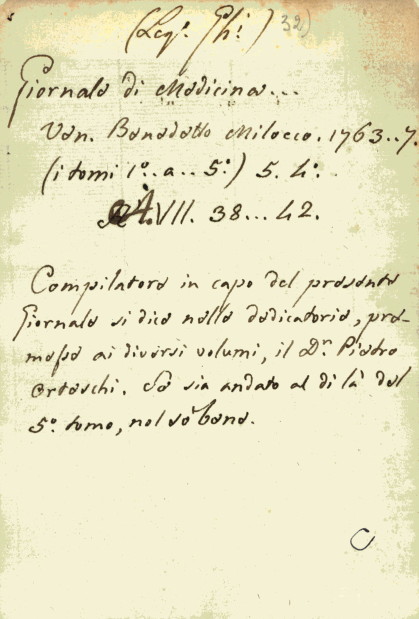 (Leg.ª Gh.ª) 32)
Giornale di Medicina...
Ven. Benedetto Milocco. 1763..7.
(i tomi 1º. a.. 5º.) 5. 4º.
A.VII. 38... 42.
Compilatore in capo del presente
Giornale si dice nella dedicatoria, pre-
messa ai diversi volumi, il D.r Pietro
Orteschi. Se sia andato al di là del
5º. tomo, nol sò bene.
C